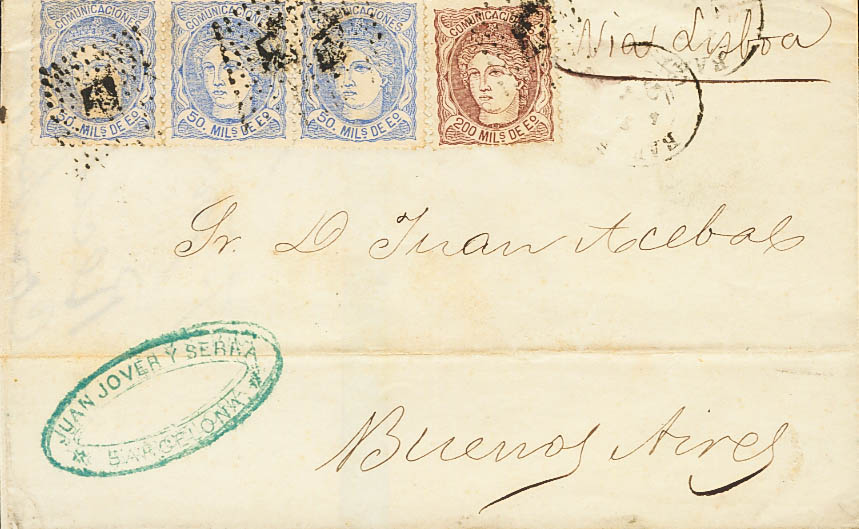 COMUNICACIONES
50. MILS DE EO
COMUNICACIONES
50. MILS DE EO
COMUNICACIONES
50. MILS DE EO
COMUNICACIONES
200 MILS DE EO
Via Lisboa
Sr. D Juan Acebal
JUAN JOVER Y SERRA
BARCELONA
Buenos Aires